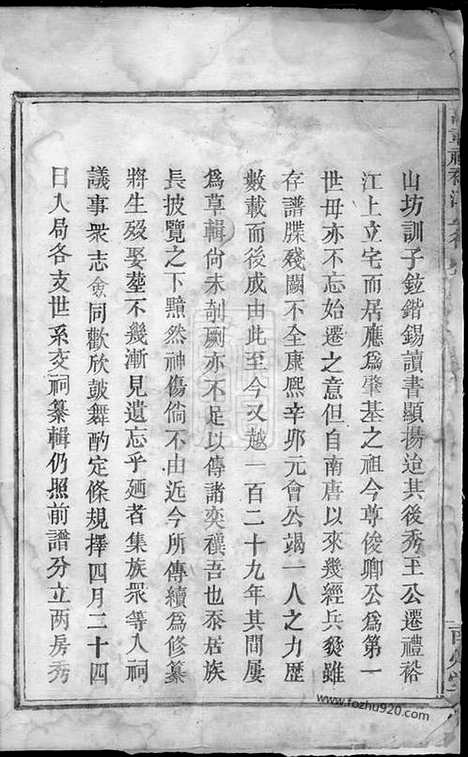 山坊訓子鉉鍇錫讀書顯揚迨其後秀王公遷禮裕
江上立宅而居應爲肇基之祖今尊俊卿公爲第一
世毋亦不忘始遷之意但自南唐以來幾經兵燹雖
存譜牒殘闕不全康熙辛卯元會公竭一人之力歷
數載而後成由此至今又越一百二十九年其間屢
爲草輯尚未剞劂亦不足以傳諸奕禩吾也忝居族
長披覽之下黯然神傷倘不由近今所傳續爲修纂
將生歿娶塟不幾漸見遺忘乎廼者集族眾等入祠
議事眾志僉同歡欣鼓舞酌定條規擇四月二十四
日入局各支世系交祠纂輯仍照前譜分立两房秀
www.fozhu920.com